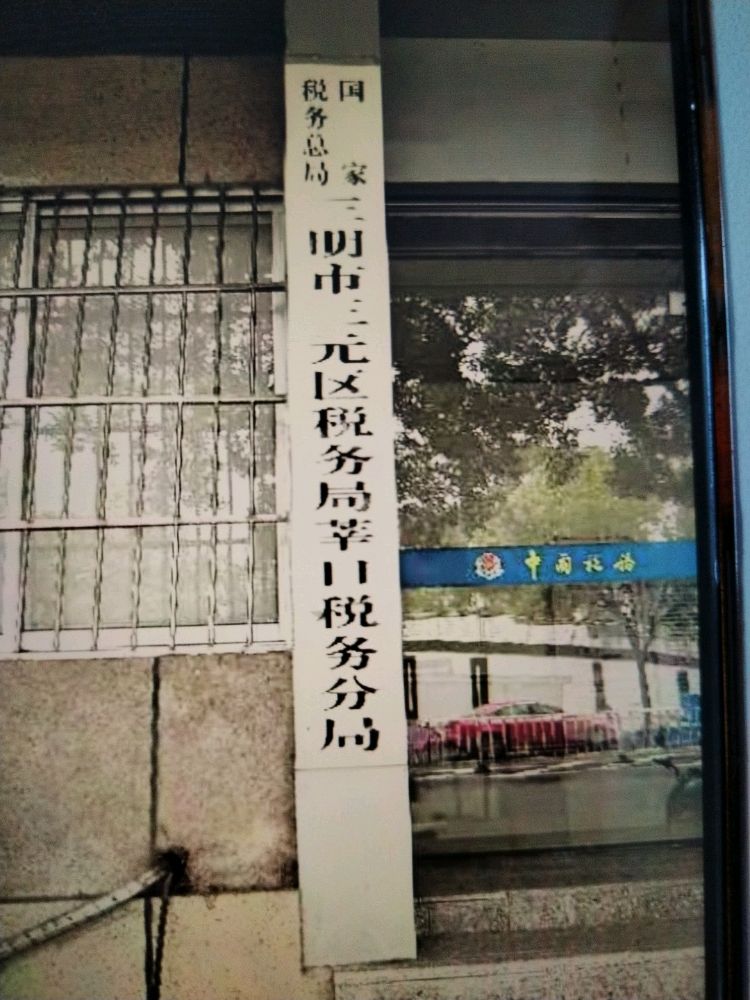 国家
税务总局
三明市三元区税务局莘口税务分局
中国税务